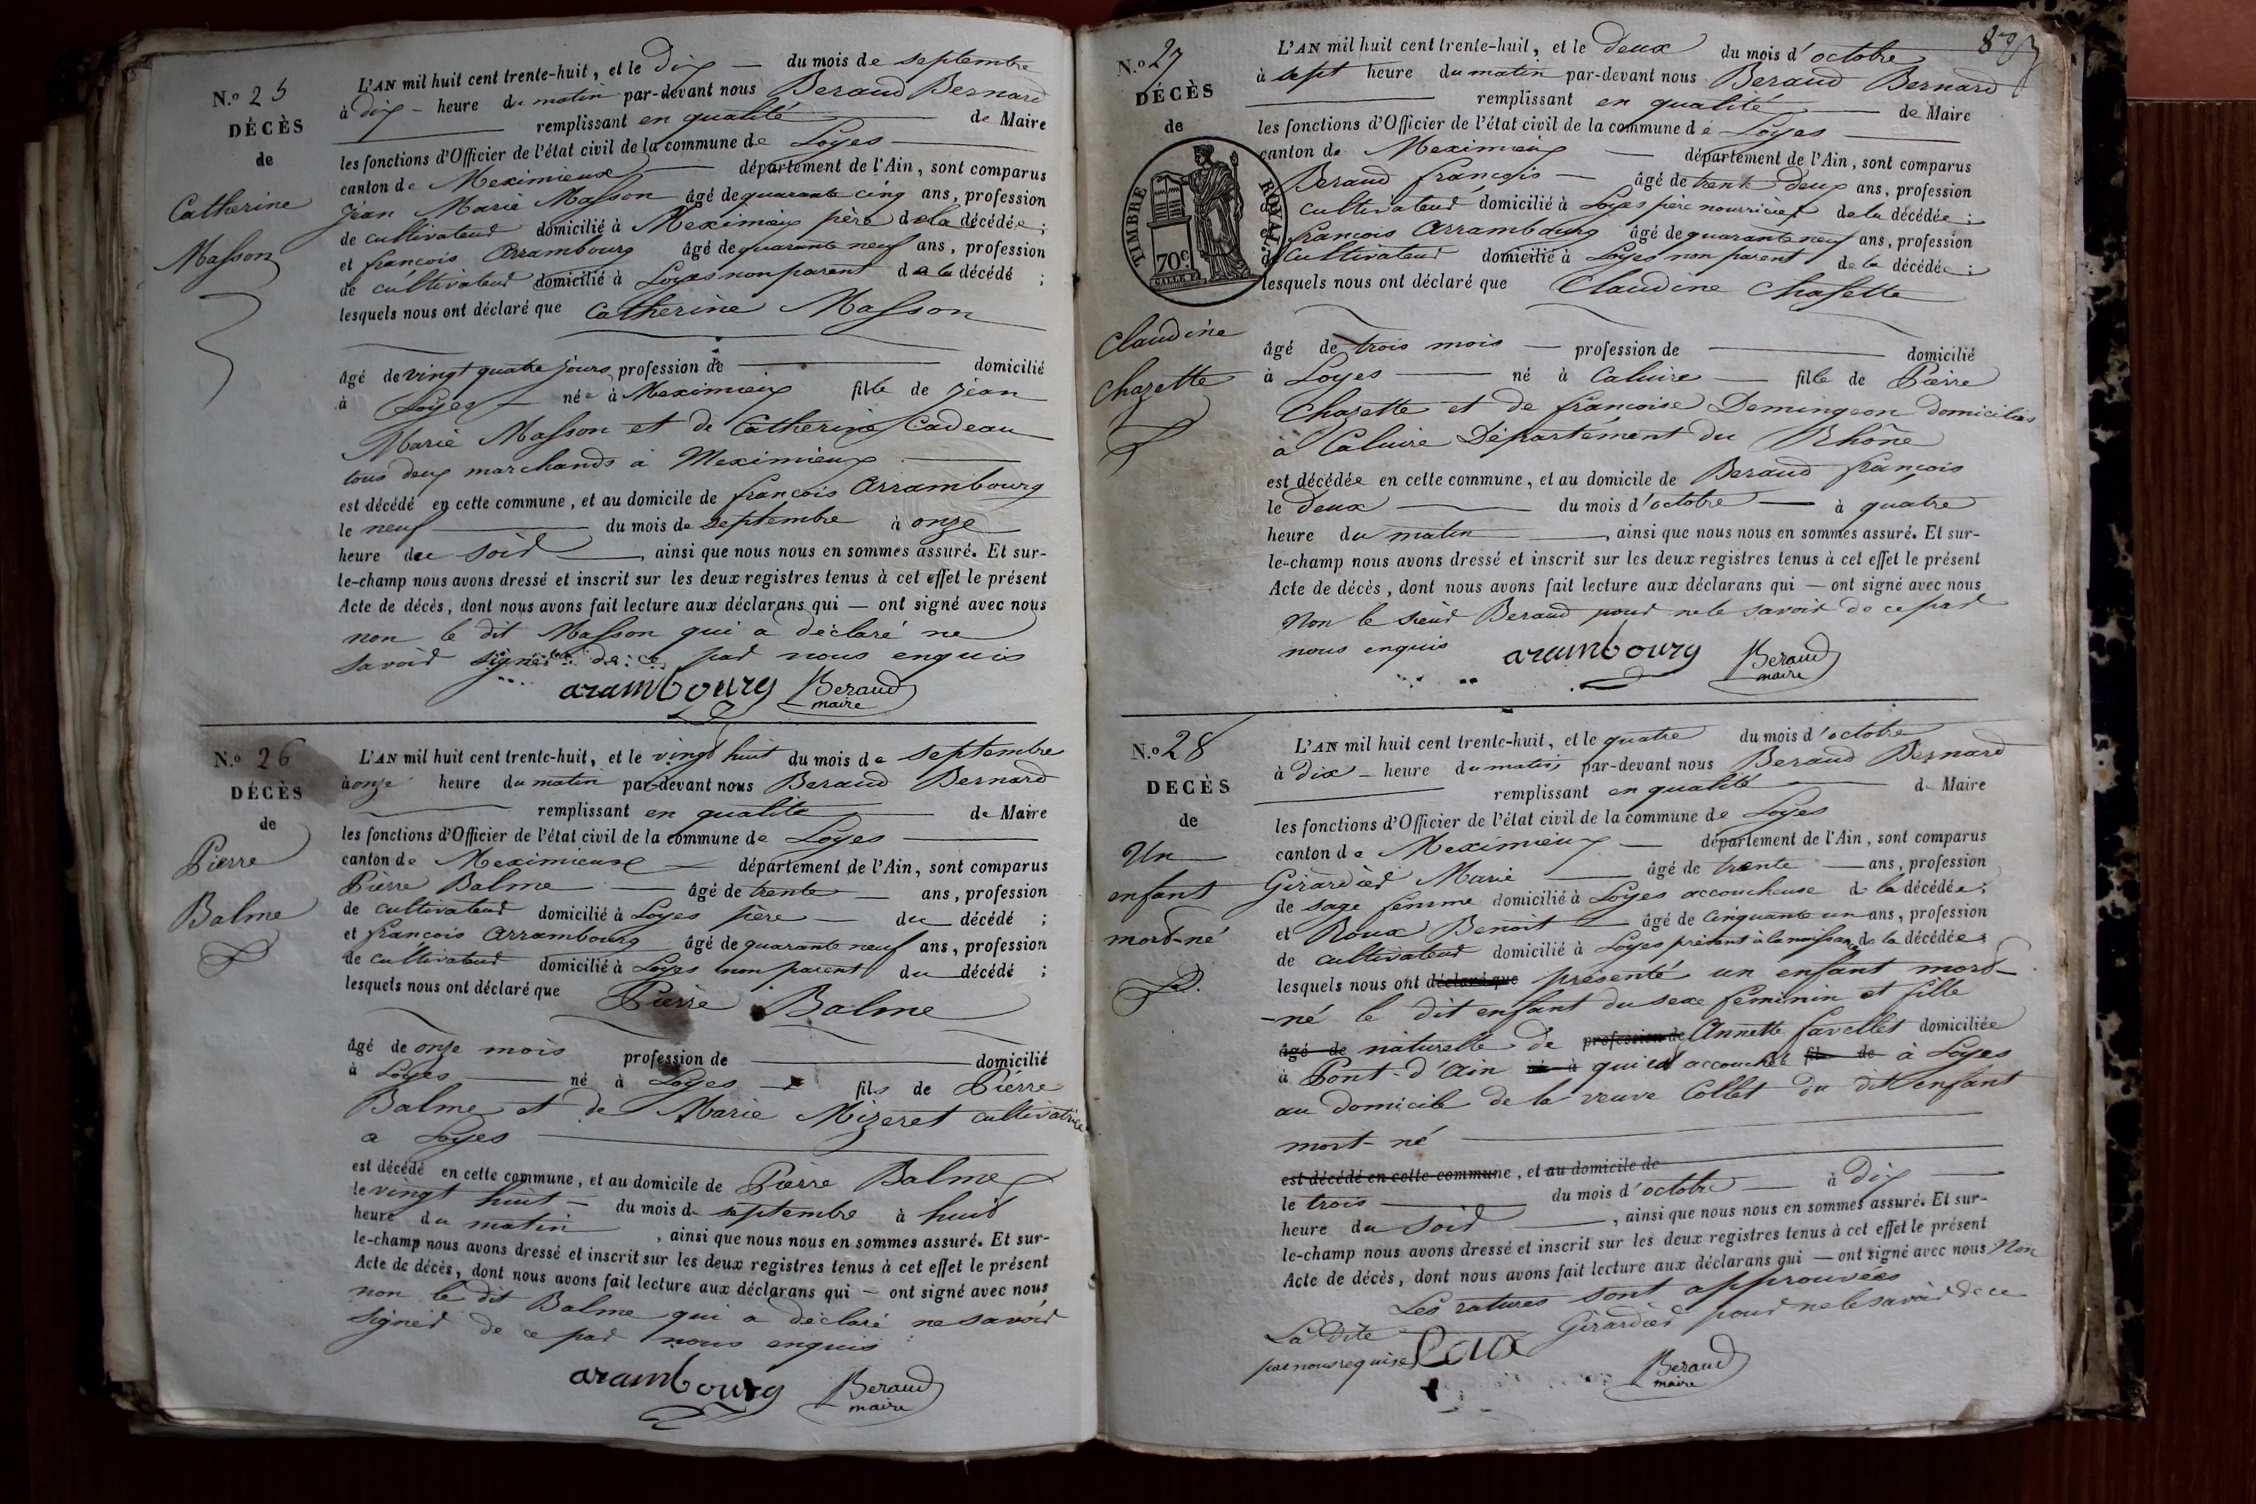 N.o 25
DÉCÈS
de
Catherine
Masson
L'AN mil huit cent trente-huit, et le dix — du mois de septembre
à dix — heure du matin par-devant nous Beraud Bernard
remplissant en qualité de Maire
les fonctions d'Officier de l'état civil de la commune de Loyes
canton de Meximieux département de l'Ain, sont comparus
Jean Marie Masson âgé de quarante cinq ans, profession
de cultivateur domicilié à Meximieux père de la décédée ;
et françois Arrambourg âgé de quarante neuf ans, profession
de cultivateur domicilié à Loyes non parent de la décédé ;
lesquels nous ont déclaré que Catherine Masson
âgé de vingt quatre jours profession de — domicilié
à Loyes — née à Meximieux fille de Jean
Marie Masson et de Catherine Cadeau
tous deux marchands à Meximieux
est décédé en cette commune, et au domicile de françois Arrambourg
le neuf — du mois de septembre à onze
heure du soir —, ainsi que nous nous en sommes assuré. Et sur-
le-champ nous avons dressé et inscrit sur les deux registres tenus à cet effet le présent
Acte de décès, dont nous avons fait lecture aux déclarans qui — ont signé avec nous
non le dit Masson qui a déclaré ne
savoir signer de ce par nous enquis
arambourg Beraud
maire
N.o 26
DÉCÈS
de
Pierre
Balme
L'AN mil huit cent trente-huit, et le vingt huit du mois de septembre
à onze heure du matin par-devant nous Beraud Bernard
remplissant en qualité de Maire
les fonctions d'Officier de l'état civil de la commune de Loyes
canton de Meximieux — département de l'Ain, sont comparus
Pierre Balme — âgé de trente — ans, profession
de cultivateur domicilié à Loyes père — du décédé ;
et françois Arrambourg âgé de quarante neuf ans, profession
de cultivateur domicilié à Loyes non parent du décédé ;
lesquels nous ont déclaré que Pierre Balme
âgé de onze mois profession de — domicilié
à Loyes — né à Loyes — fils de Pierre
Balme et de Marie Mizeret cultivatrice
a Loyes
est décédé en cette commune, et au domicile de Pierre Balme
le vingt huit — du mois de septembre à huit
heure du matin, ainsi que nous nous en sommes assuré. Et sur-
le-champ nous avons dressé et inscrit sur les deux registres tenus à cet effet le présent
Acte de décès, dont nous avons fait lecture aux déclarans qui — ont signé avec nous
non le dit Balme qui a déclaré ne savoir
signer de ce par nous enquis
arambourg Beraud
maire
87
N.o 27
DÉCÈS
de
TIMBRE ROYAL
70c
Claudine
Chazette
L'AN mil huit cent trente-huit, et le deux du mois d'octobre
à sept heure du matin par-devant nous Beraud Bernard
remplissant en qualité — de Maire
les fonctions d'Officier de l'état civil de la commune de Loyes
canton de Meximieux — département de l'Ain, sont comparus
Beraud françois — âgé de trente deux ans, profession
de cultivateur domicilié à Loyes père nourricier de la décédée ;
et françois Arrambourg âgé de quarante neuf ans, profession
de cultivateur domicilié à Loyes non parent de la décédée ;
lesquels nous ont déclaré que Claudine Chasette
âgé de trois mois — profession de — domicilié
à Loyes — né à Caluire — fille de Pierre
Chazette et de françoise Demingeon domiciliés
à Caluire Département du Rhône
est décédée en cette commune, et au domicile de Beraud françois
le deux — du mois d'octobre — à quatre
heure du matin —, ainsi que nous nous en sommes assuré. Et sur-
le-champ nous avons dressé et inscrit sur les deux registres tenus à cet effet le présent
Acte de décès, dont nous avons fait lecture aux déclarans qui — ont signé avec nous
Non le sieur Beraud pour ne le savoir de ce par
nous enquis arambourg Beraud
maire
N.o 28
DECÈS
de
Un
enfant
mort-né
L'AN mil huit cent trente-huit, et le quatre du mois d'octobre
à dix — heure du matin par-devant nous Beraud Bernard
remplissant en qualité — de Maire
les fonctions d'Officier de l'état civil de la commune de Loyes
canton de Meximieux — département de l'Ain, sont comparus
Girardier Marie — âgé de trente — ans, profession
de sage femme domicilié à Loyes accoucheuse de la décédée ;
et Roux Benoit — âgé de cinquante un ans, profession
de cultivateur domicilié à Loyes présent à la naissance de la décédée ;
lesquels nous ont déclaré que présenté un enfant mort-
-né le dit enfant du sexe féminin et fille
âgé de naturelle de profession de Annette favellet domiciliée
à Pont-d'Ain né à qui est accouchée fils de à Loyes
au domicile de la veuve Collet du dit enfant
mort-né
est décédé en cette commune, et au domicile de
le trois — du mois d'octobre — à dix
heure du soir —, ainsi que nous nous en sommes assuré. Et sur-
le-champ nous avons dressé et inscrit sur les deux registres tenus à cet effet le présent
Acte de décès, dont nous avons fait lecture aux déclarans qui — ont signé avec nous Non
Les ratures sont approuvées
La dite Girardier pour ne le savoir de ce
par nous requise Roux Beraud
maire